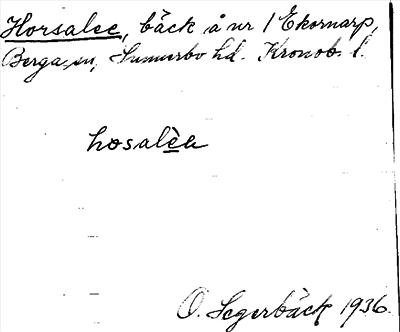 Horsalee, bäck å nr 1 Ekornarp,
Berga sn, Sunnerbo hd. Kronob. l.
hosalèn
O. Segerbäck 1936.